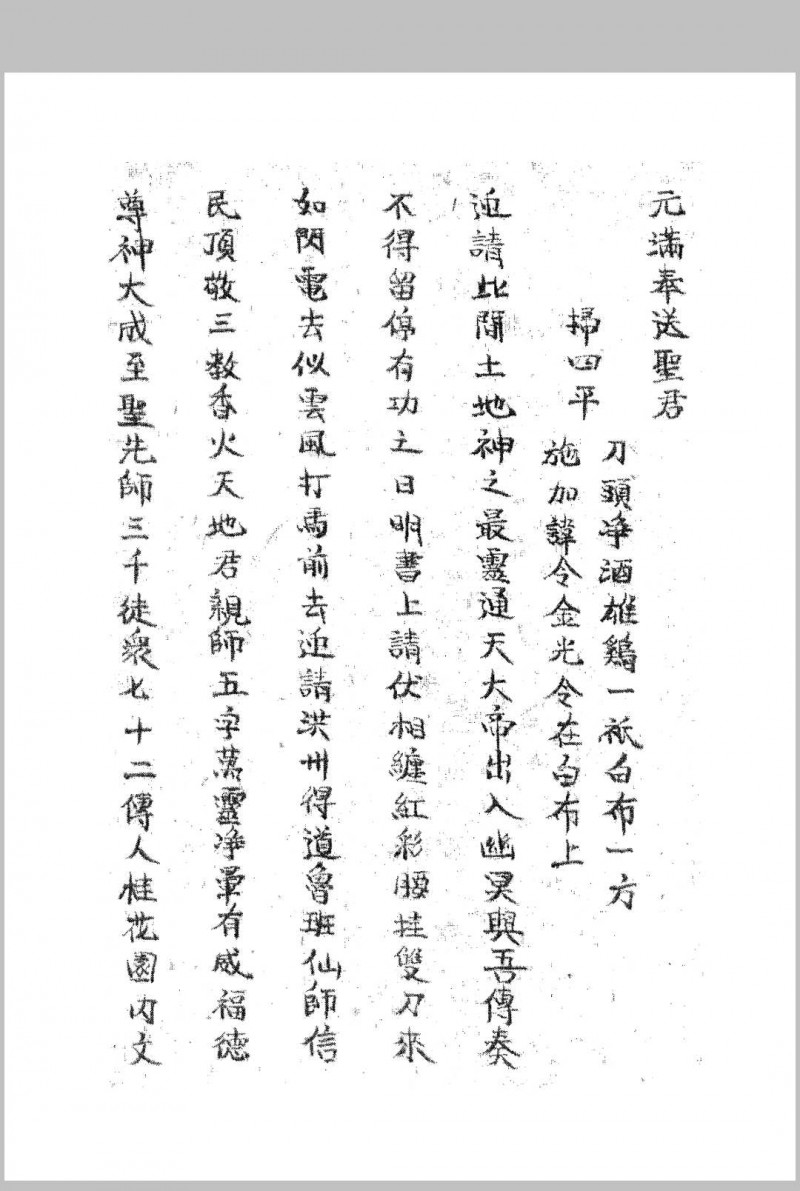 元滿奉送聖君
掃四平
刀頭净酒雄鷄一祇白布一方
施加諱令金光令在白布上
迎請此間土地神之最靈通天大帝出入幽冥與吾傳奏
不得留停有功之日明書上請伏相纏紅彩腰挂雙刀來
如閃電去似雲風打馬前去迎請洪州得道魯班仙師信
民頂敬三教香火天地君親師五字萬靈净暈有感福德
尊神大成至聖先師三千徒衆七十二傳人桂花園内文